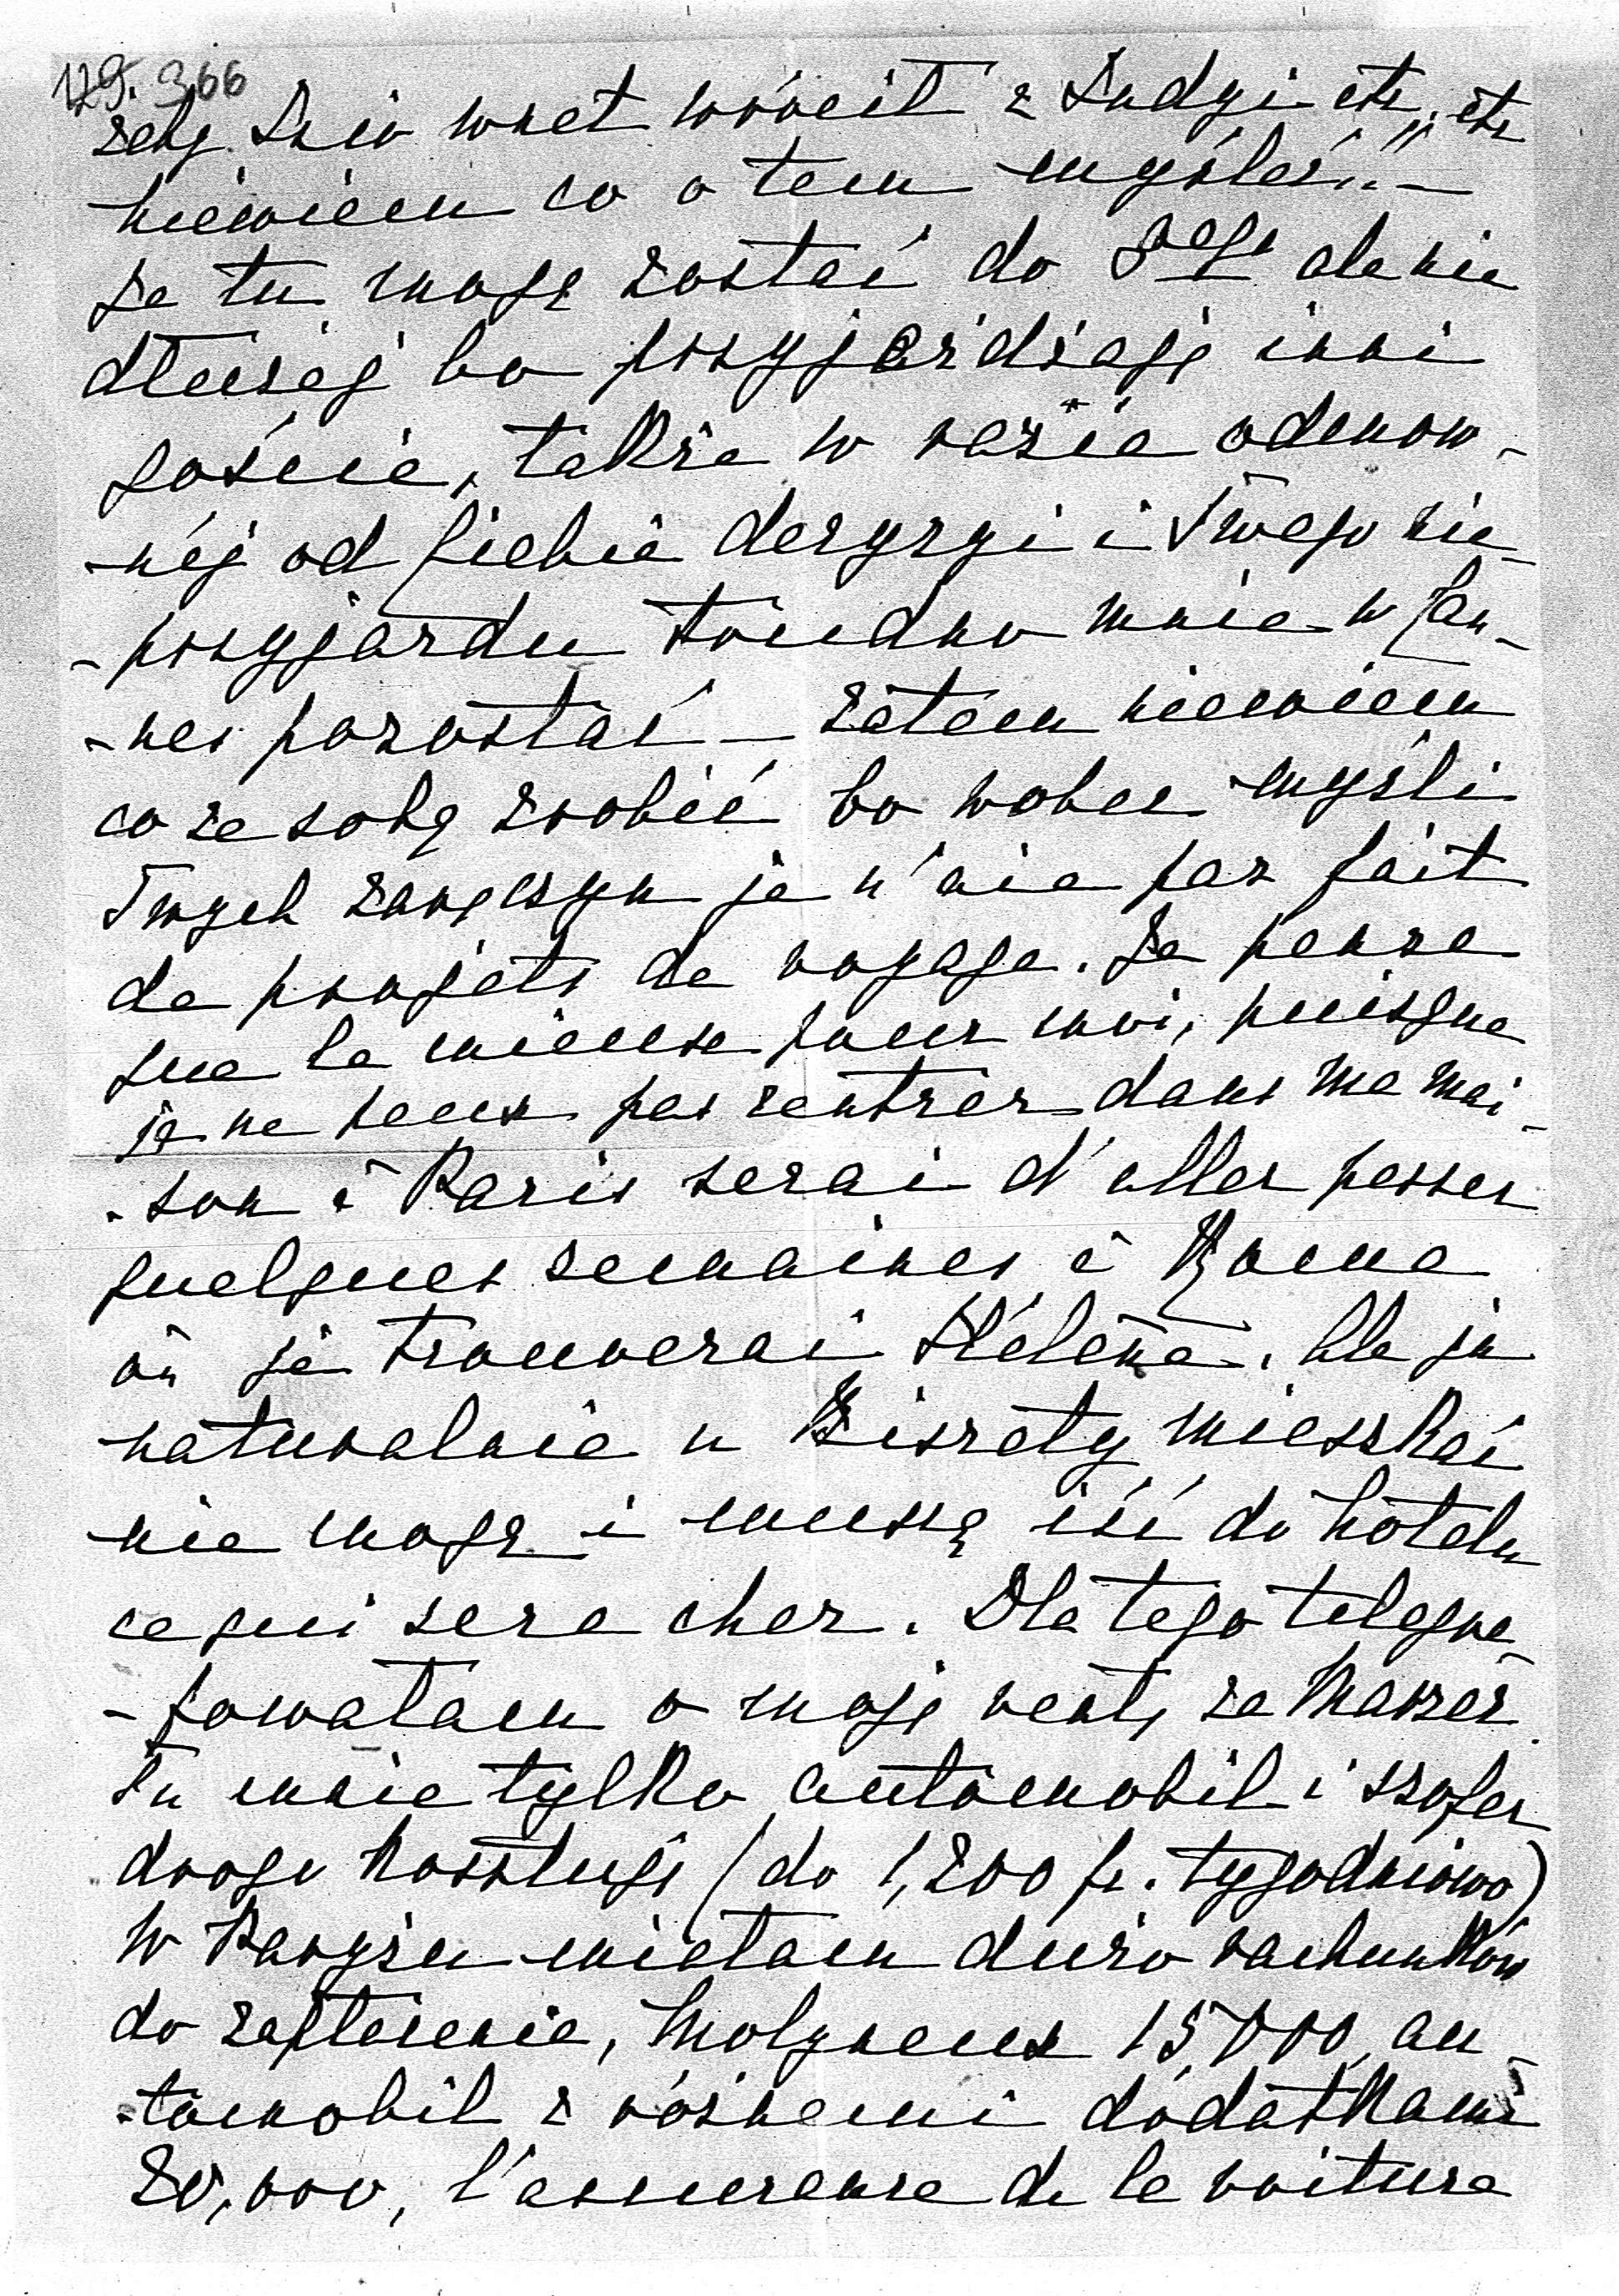 129. 366
żeby Józio wnet wrócił z Indyi etc. etc
niewiem co o tem myśleć!! —
Ja tu mogę zostać do 8go ale nie
dłużej bo przyjeżdżają inni
goście, także w razie odmow-
-nej od Ciebie decyzyi i Twego nie-
-przyjazdu trudno mnie w Can-
-nes pozostać — zatem niewiem
co ze sobą zrobić bo wobec myśli
Twych zaręczyn je n'aie pas fait
de projets de voyage. Je pense
que le mieux pour moi, puisque
je ne peux pas rentrer dans ma mai-
-son à Paris serai d'aller passer
quelques semaines à Rome
où je trouverai Hélène. Ale ja
naturalnie u Biszety mieszkać
nie mogę i muszę iść do hôtelu
ce qui sera cher. Dla tego telegra-
-fowałam o moję rentę za Marzec.
Tu mnie tylko automobil i szofer
drogo kosztują (do 1,200 fr. tygodniowo)
W Paryżu miałam dużo rachunków
do zapłacenia, Molyneux 15000, au-
-tomobil z różnemi dodatkami
20,000, l'assurense de la voiture